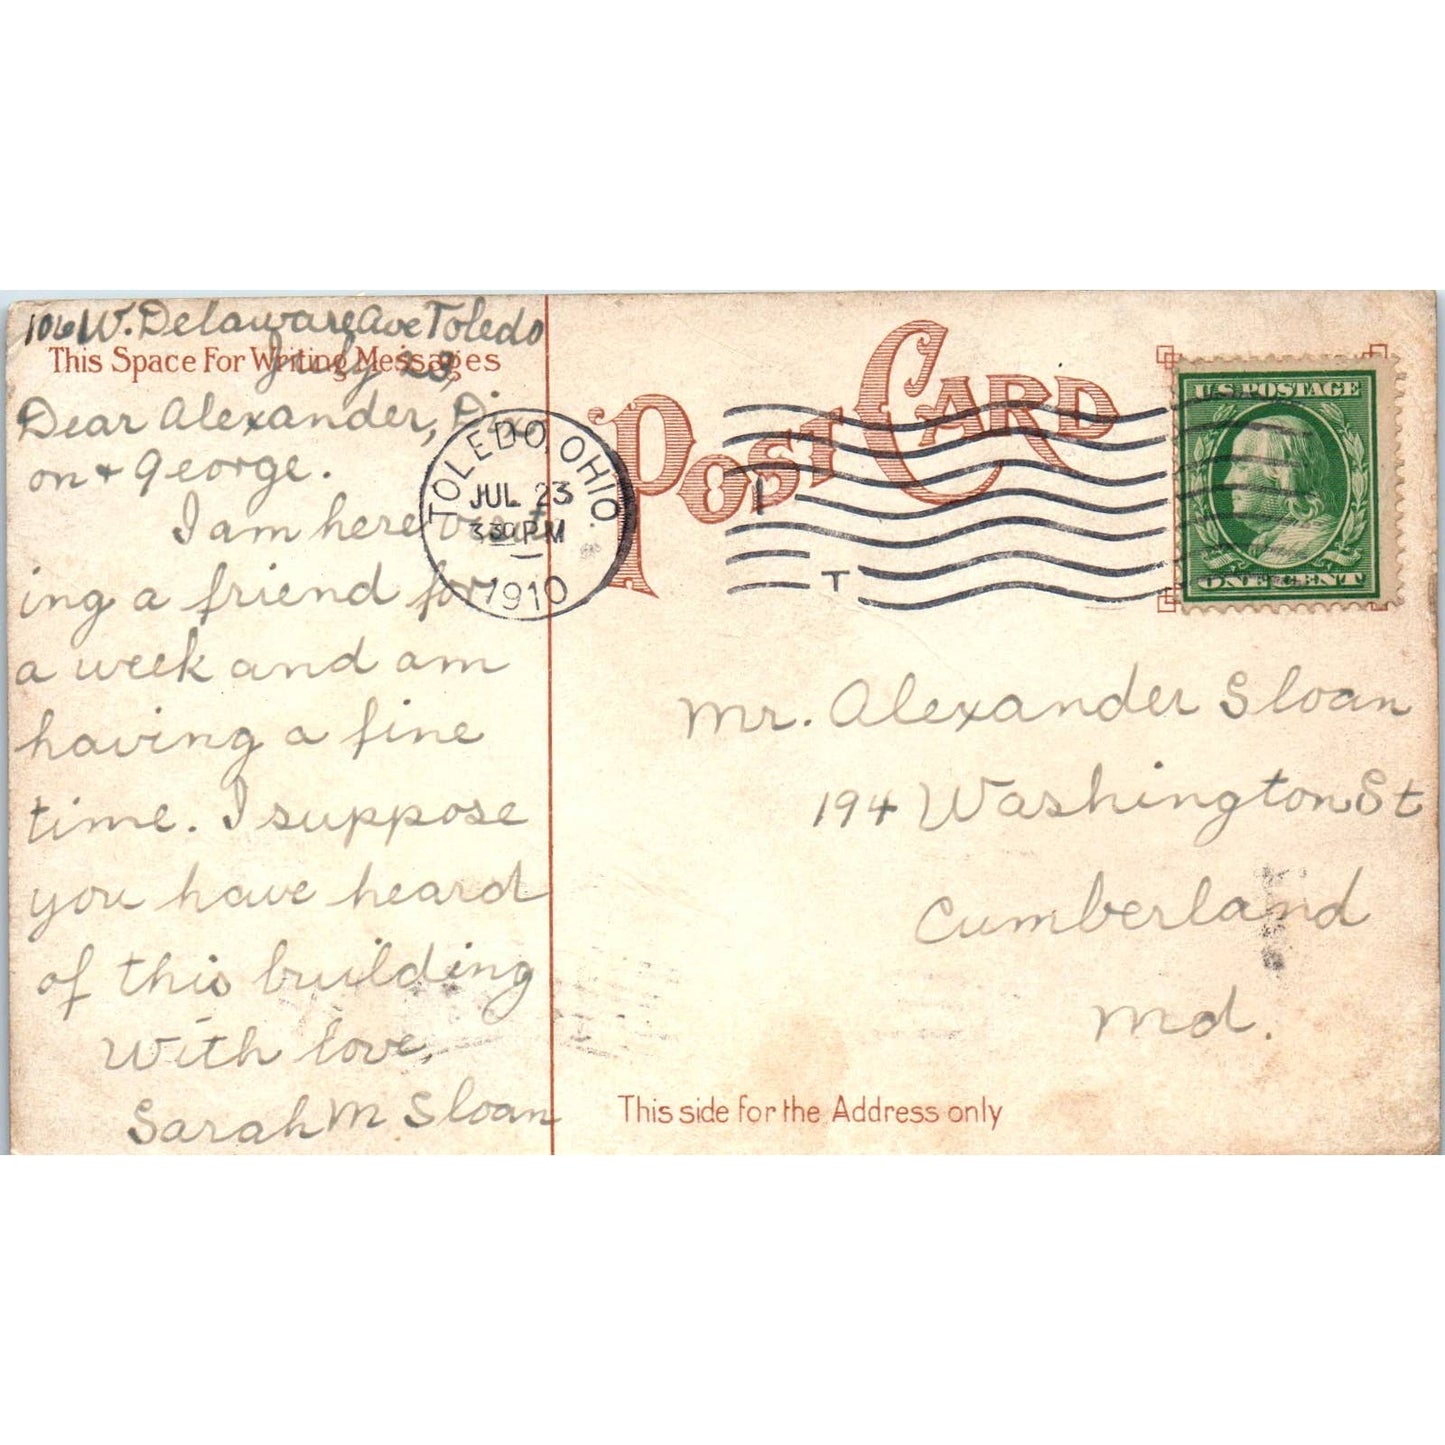 106 W. Delaware Ave Toledo
This Space For Writing Messages
July 23,
Dear Alexander, Di-
on + George.
I am here visit
ing a friend for
a week and am
having a fine
time. I suppose
you have heard
of this building
With love,
Sarah M Sloan
POST CARD
TOLEDO, OHIO.
JUL 23
3 30 PM
1910
T
U.S. POSTAGE
ONE CENT
Mr. Alexander Sloan
194 Washington St
Cumberland
Md.
This side for the Address only